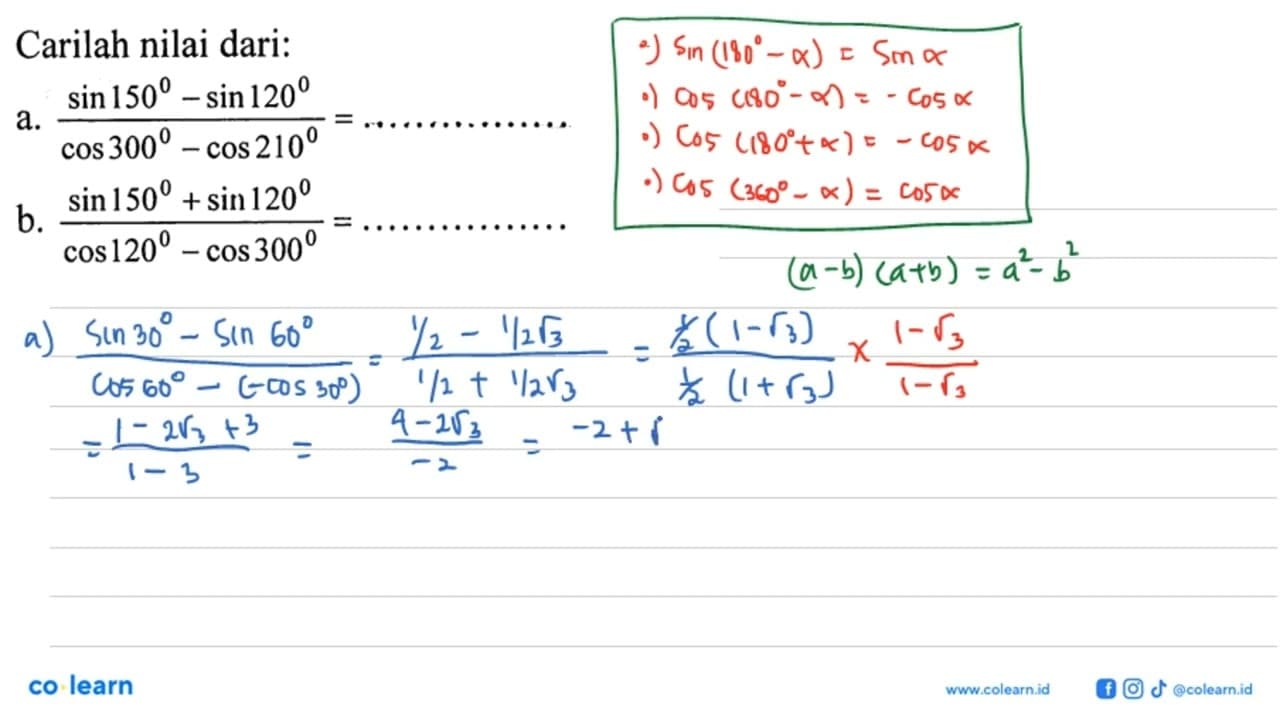 Carilah nilai dari:
a. (sin 150⁰ – sin 120⁰)/(cos 300⁰ – cos 210⁰) = ..................
b. (sin 150⁰ + sin 120⁰)/(cos 120⁰ – cos 300⁰) = ..................
•) Sin (180° - α) = Sin α
•) Cos (180° - α) = - Cos α
•) Cos (180° + α) = - cos α
•) Cos (360° - α) = cos α
(a-b) (a+b) = a² - b²
a) (Sin 30° - Sin 60°)/(Cos 60° - (-cos 30°)) = (1/2 - 1/2√3)/(1/2 + 1/2√3) = (1/2 (1-√3))/(1/2 (1+√3)) x (1-√3)/(1-√3)
= (1 - 2√3 + 3)/(1 - 3) = (4 - 2√3)/(-2) = -2 + √
co learn
www.colearn.id @colearn.id